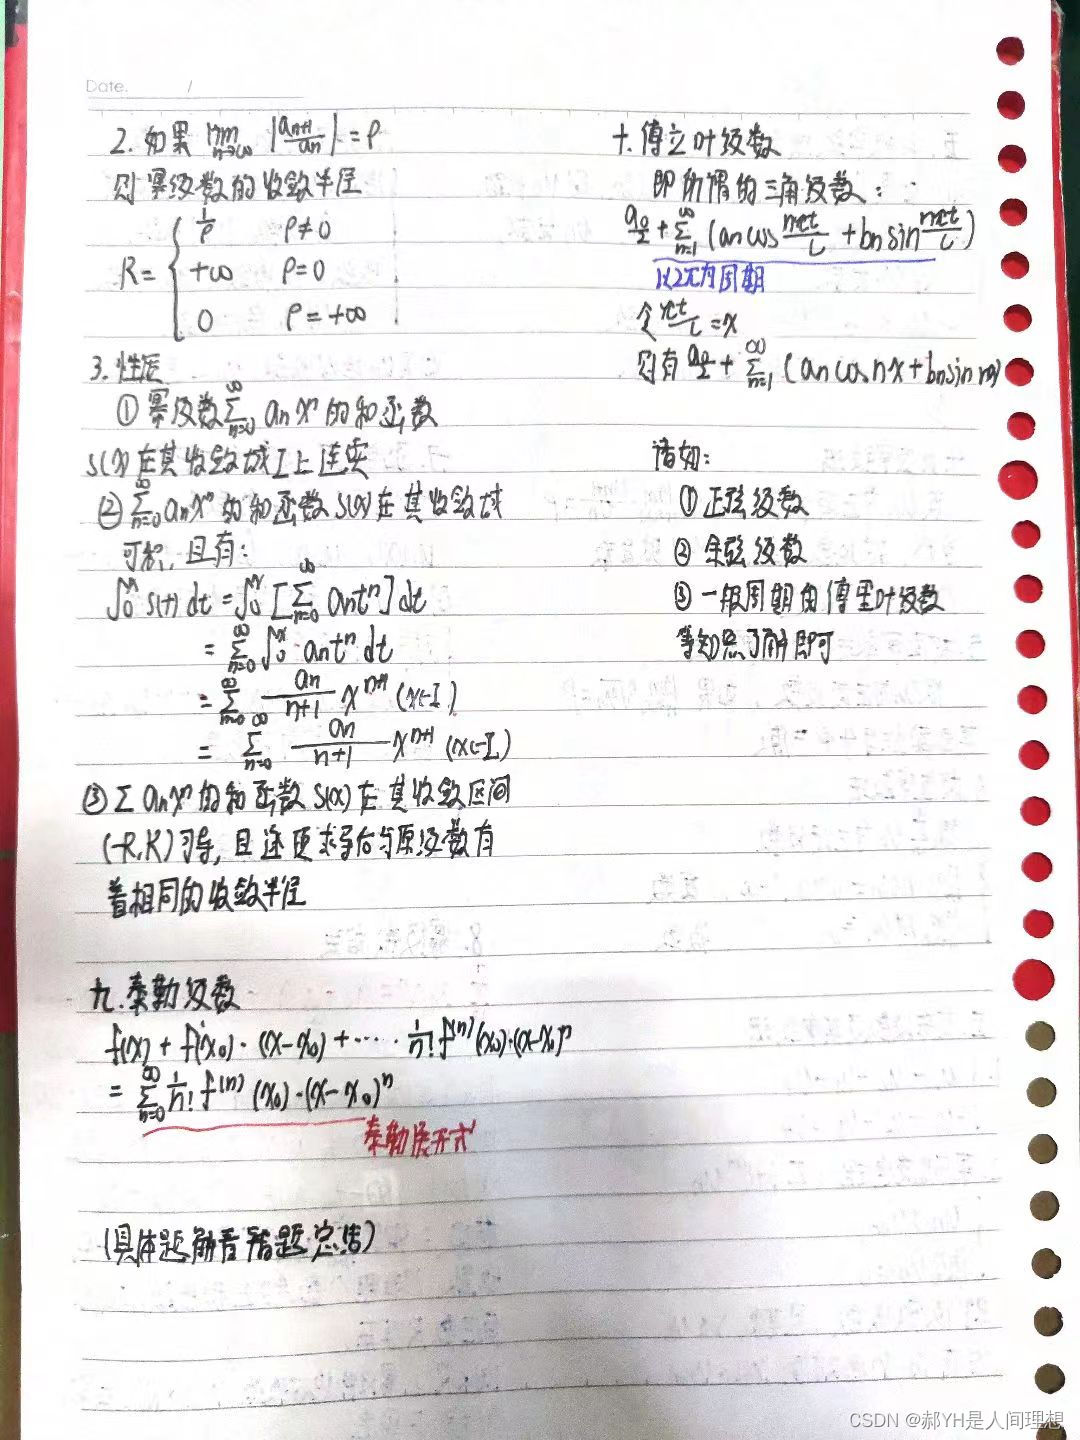 Date. /
2. 如果 lim n→∞ |an+1/an| = ρ
则幂级数的收敛半径
R = { 1/ρ ρ≠0
+∞ ρ=0
0 ρ=+∞
3. 性质
① 幂级数 ∑n=0∞ anxⁿ 的和函数
S(x) 在其收敛域 I 上连续
② ∑n=0∞ anxⁿ 的和函数 S(x) 在其收敛域
可积, 且有:
∫0x S(t) dt = ∫0x [∑n=0∞ antⁿ] dt
= ∑n=0∞ ∫0x antⁿ dt
= ∑n=0∞ an/n+1 xⁿ⁺¹ (x∈I)
= ∑n=0∞ an/n+1 xⁿ⁺¹ (x∈I)
③ ∑ anxⁿ 的和函数 S(x) 在其收敛区间
(-R,R) 可导, 且逐项求导后与原级数有
着相同的收敛半径
九. 泰勒级数
f(x) + f'(x₀)·(x-x₀) + ···· 1/n! f⁽ⁿ⁾(x₀)·(x-x₀)ⁿ
= ∑n=0∞ 1/n! f⁽ⁿ⁾(x₀)·(x-x₀)ⁿ
泰勒展开式
(具体题销看搭题总结)
十. 傅立叶级数
即所谓的三角级数:
a₀/2 + ∑n=1∞ (an cos nπt/l + bn sin nπt/l)
以2π为周期
令 πt/l = x
则有 a₀/2 + ∑n=1∞ (an cos nx + bn sin nx)
诸如:
① 正弦级数
② 余弦级数
③ 一般周期的傅里叶级数
等知悉了解即可
CSDN @郝YH是人间理想